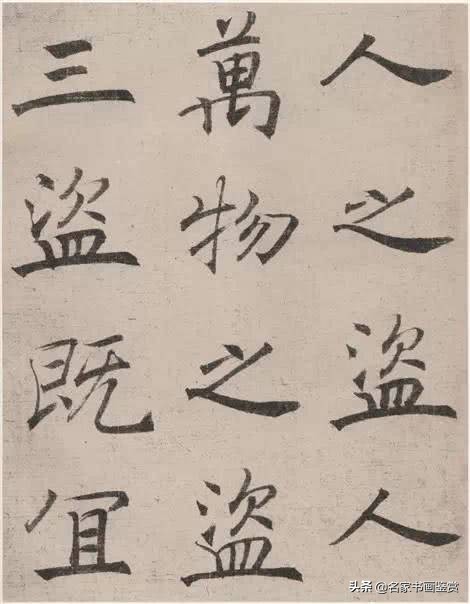 人之盜人
萬物之盜
三盜既宜
头条 @名家书画鉴赏